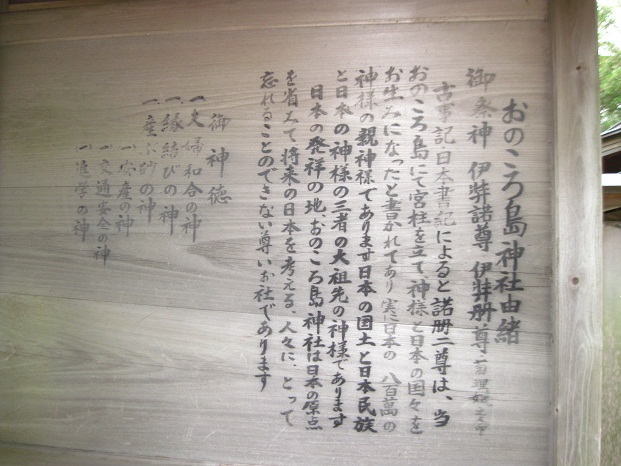 おのころ島神社由緒
御祭神 伊弉諾尊 伊弉册尊 菊理媛之命
古事記日本書記によると諾册二尊は、当
おのころ島にて宮柱を立て、神様と日本の国々を
お生みになったと書かれてあり実に日本の 八百萬の
神様の親神様であります日本の国土と日本民族
と日本の神様の三者の大祖先の神様であります
日本の発祥の地、おのころ島神社は日本の原点
を省みて将来の日本を考える、人々に、とって
忘れることのできない尊いお社であります
御神徳
一、夫婦和合の神
一、縁結びの神
一、産ぶ砂の神
一、安産の神
一、交通安全の神
一、進学の神